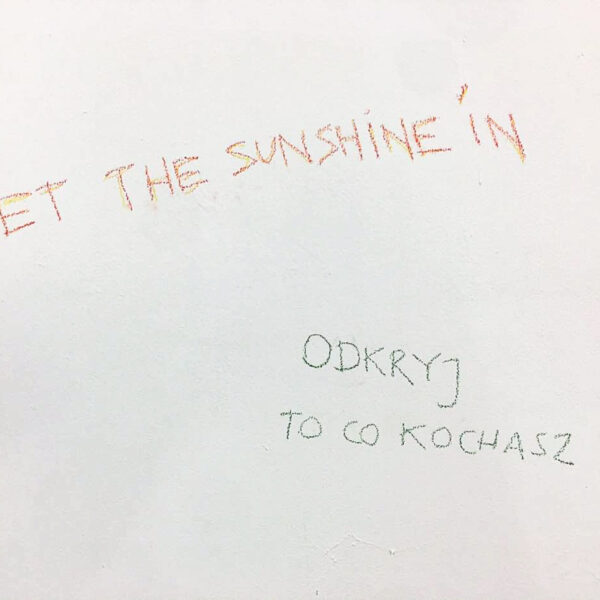 ET THE SUNSHINE IN
ODKRYJ
TO CO KOCHASZ